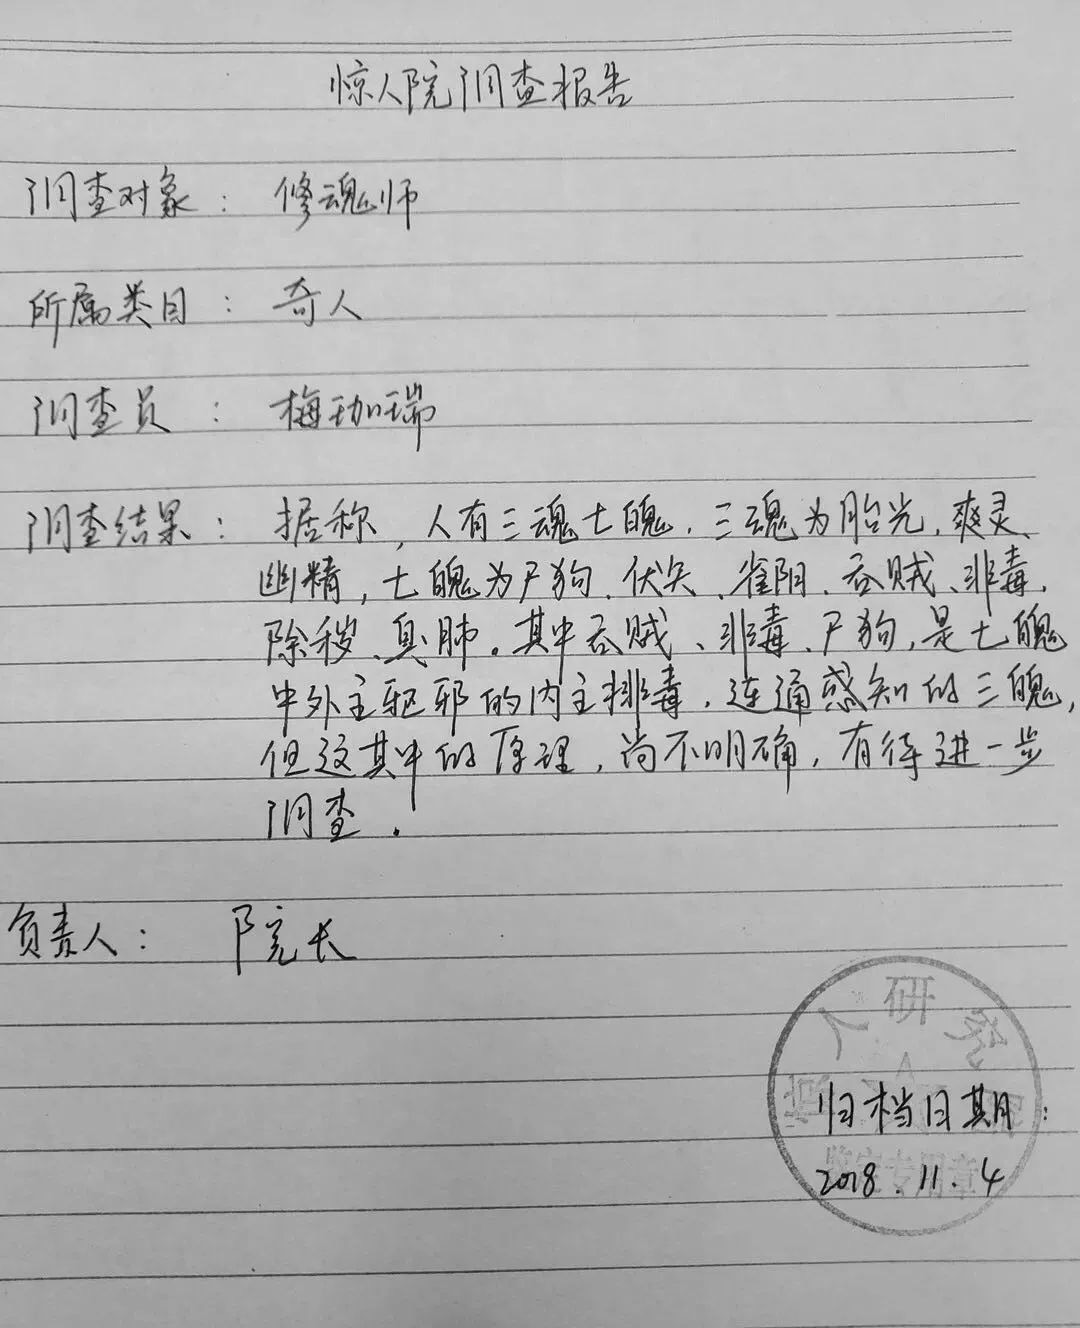 惊人院调查报告
调查对象：修魂师
所属类目：奇人
调查员：梅珈瑞
调查结果：据称，人有三魂七魄，三魂为胎光，爽灵、
幽精，七魄为尸狗、伏矢、雀阴、吞贼、非毒、
除秽、臭肺。其中吞贼、非毒、尸狗，是七魄
中外主驱邪的内主排毒，连通感知的三魄，
但这其中的原理，尚不明确，有待进一步
调查．
负责人：院长
人研究
归档日期：
2018.11.4
鉴定专用章